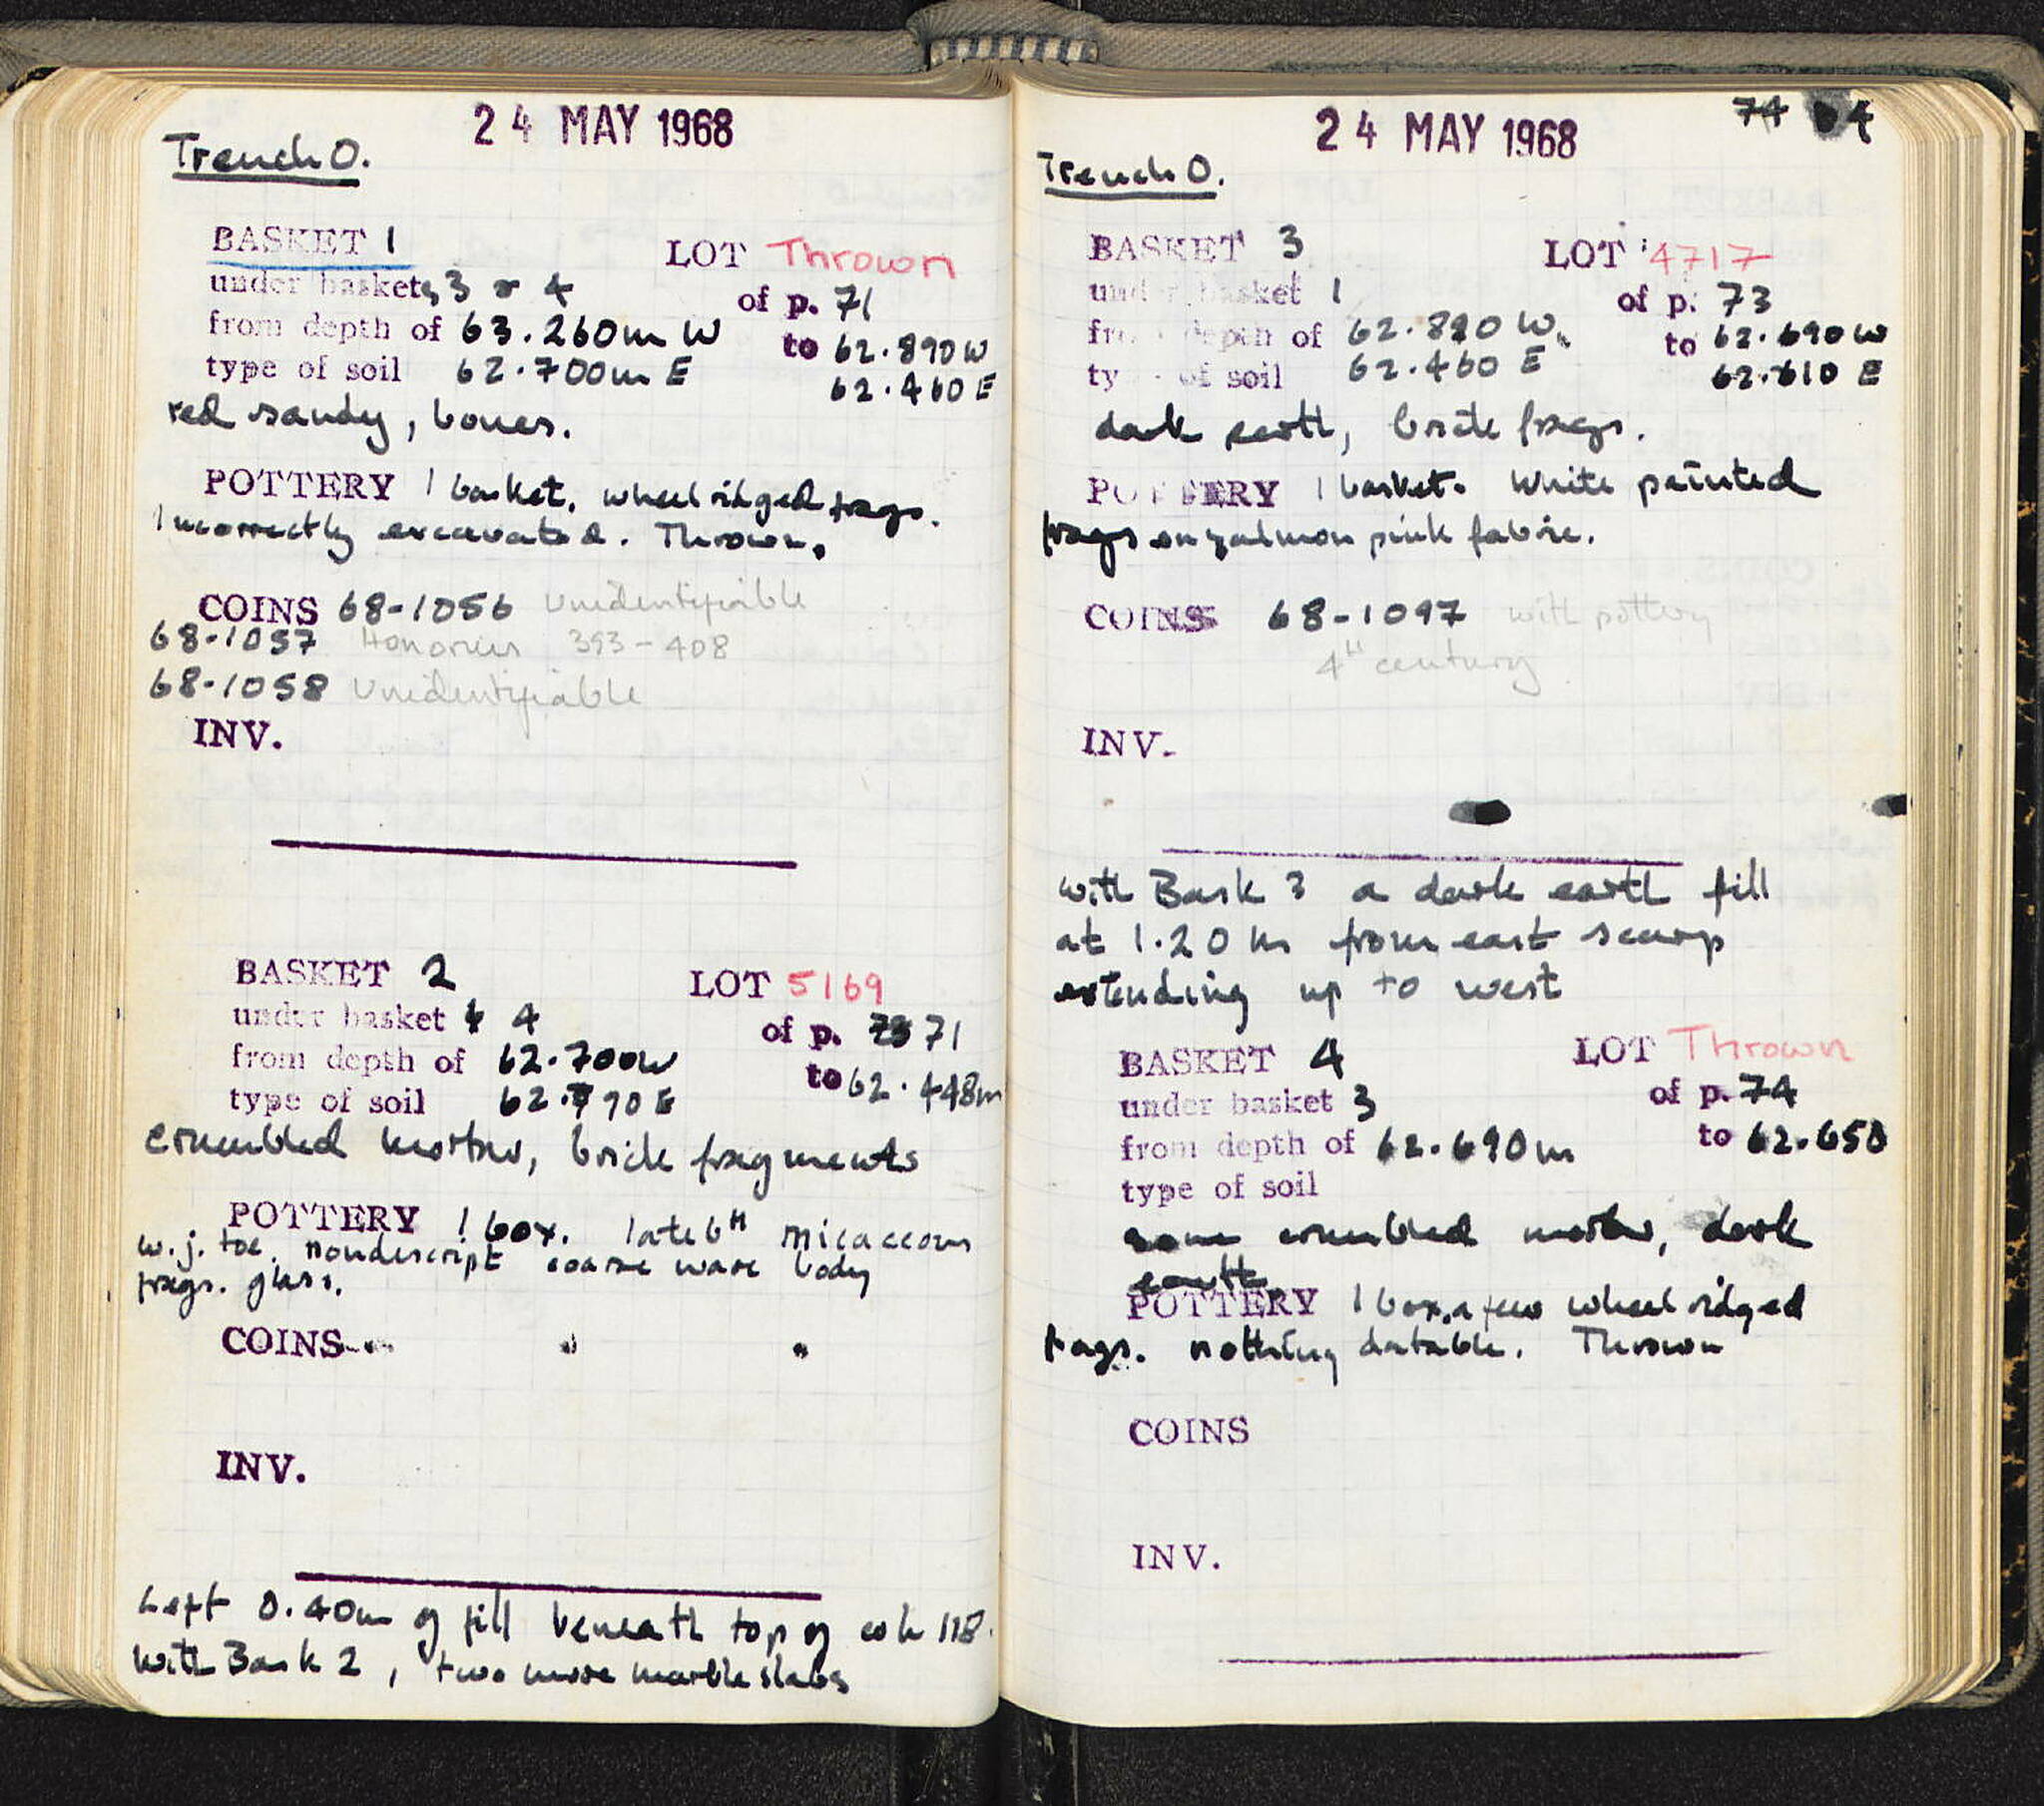 24 MAY 1968
Trench O.
BASKET 1 LOT Thrown
under baskets 3 + 4 of p. 71
from depth of 63.260m W to 62.890 W
type of soil 62.700m E 62.460 E
red sandy, bones.
POTTERY 1 basket. wheel ridged frags.
Incorrectly excavated. Thrown.
COINS 68-1056 Unidentifiable
68-1057 Honorius 393-408
68-1058 Unidentifiable
INV.
BASKET 2 LOT 5169
under basket 4 of p. 71
from depth of 62.700W to 62.448m
type of soil 62.790 E
crumbled mortar, brick fragments
POTTERY 1 box. late 6th micaceous
w.j. toe. nondescript coarse ware body
frags. glass.
COINS
INV.
Left 0.40m of fill beneath top of col. 118.
With Bask 2, two more marble slabs
24 MAY 1968 74
Trench O.
BASKET 3 LOT 4717
under basket 1 of p. 73
from depth of 62.890 W. to 62.690 W
type of soil 62.460 E 62.610 E
dark earth, brick frags.
POTTERY 1 basket. White painted
frags on salmon pink fabric.
COINS 68-1097 with pottery
4th century
INV.
with Bask 3 a dark earth fill
at 1.20 m from east scarp
extending up to west
BASKET 4 LOT Thrown
under basket 3 of p. 74
from depth of 62.690m to 62.650
type of soil
some crumbled mortar, dark
earth
POTTERY 1 box. a few wheel ridged
frags. nothing datable. Thrown
COINS
INV.